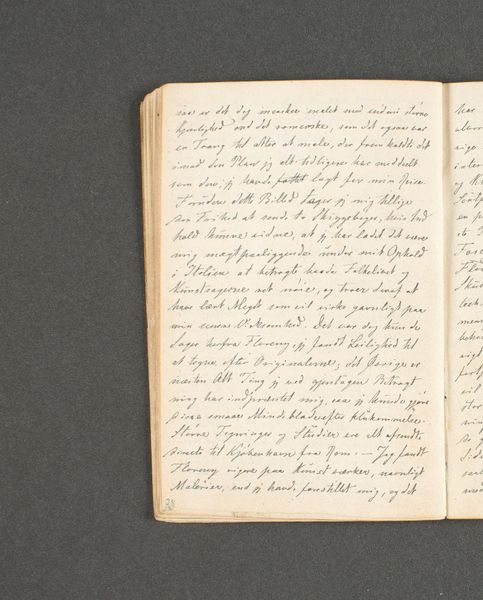 saa er det dog maaske malet med endnu større
Kjærlighed end det romerske, som det ogsaa var
en Trang til atter at male, der fremkaldte det
imod den Plan jeg alt tidligere har meddeelt
som den, jeg havde fattet lagt for min Reise.
Foruden dette Billed tager jeg mig tillige
den Frihed at sende to Skizzebøger, hvis Ind
hold kunne vidne, at jeg har ladet det være
mig magtpaaliggende under mit Ophold
i Italien at betragte baade Folkelivet og
Kunstsagerne ret nøie, og troer deraf at
have lært Meget som vil virke gavnligt paa
min senere Virksomhed. Det var dog kun de
Sager herfra Florenz, jeg fandt Leilighed til
at tegne efter Originalerne; det Øvrige er
næsten Alt Ting jeg ved gjentagen Betragt
ning har indpræntet mig, saa jeg kunde gjøre
disse smaae Mindeblade efter Hukommelse.
Større Tegninger og Studier ere alt afsendte
directe til Kjøbenhavn fra Rom. — Jeg fandt
Florenz rigere paa Kunstværker, navnligt
Malerier, end jeg havde forestillet mig, og det
28